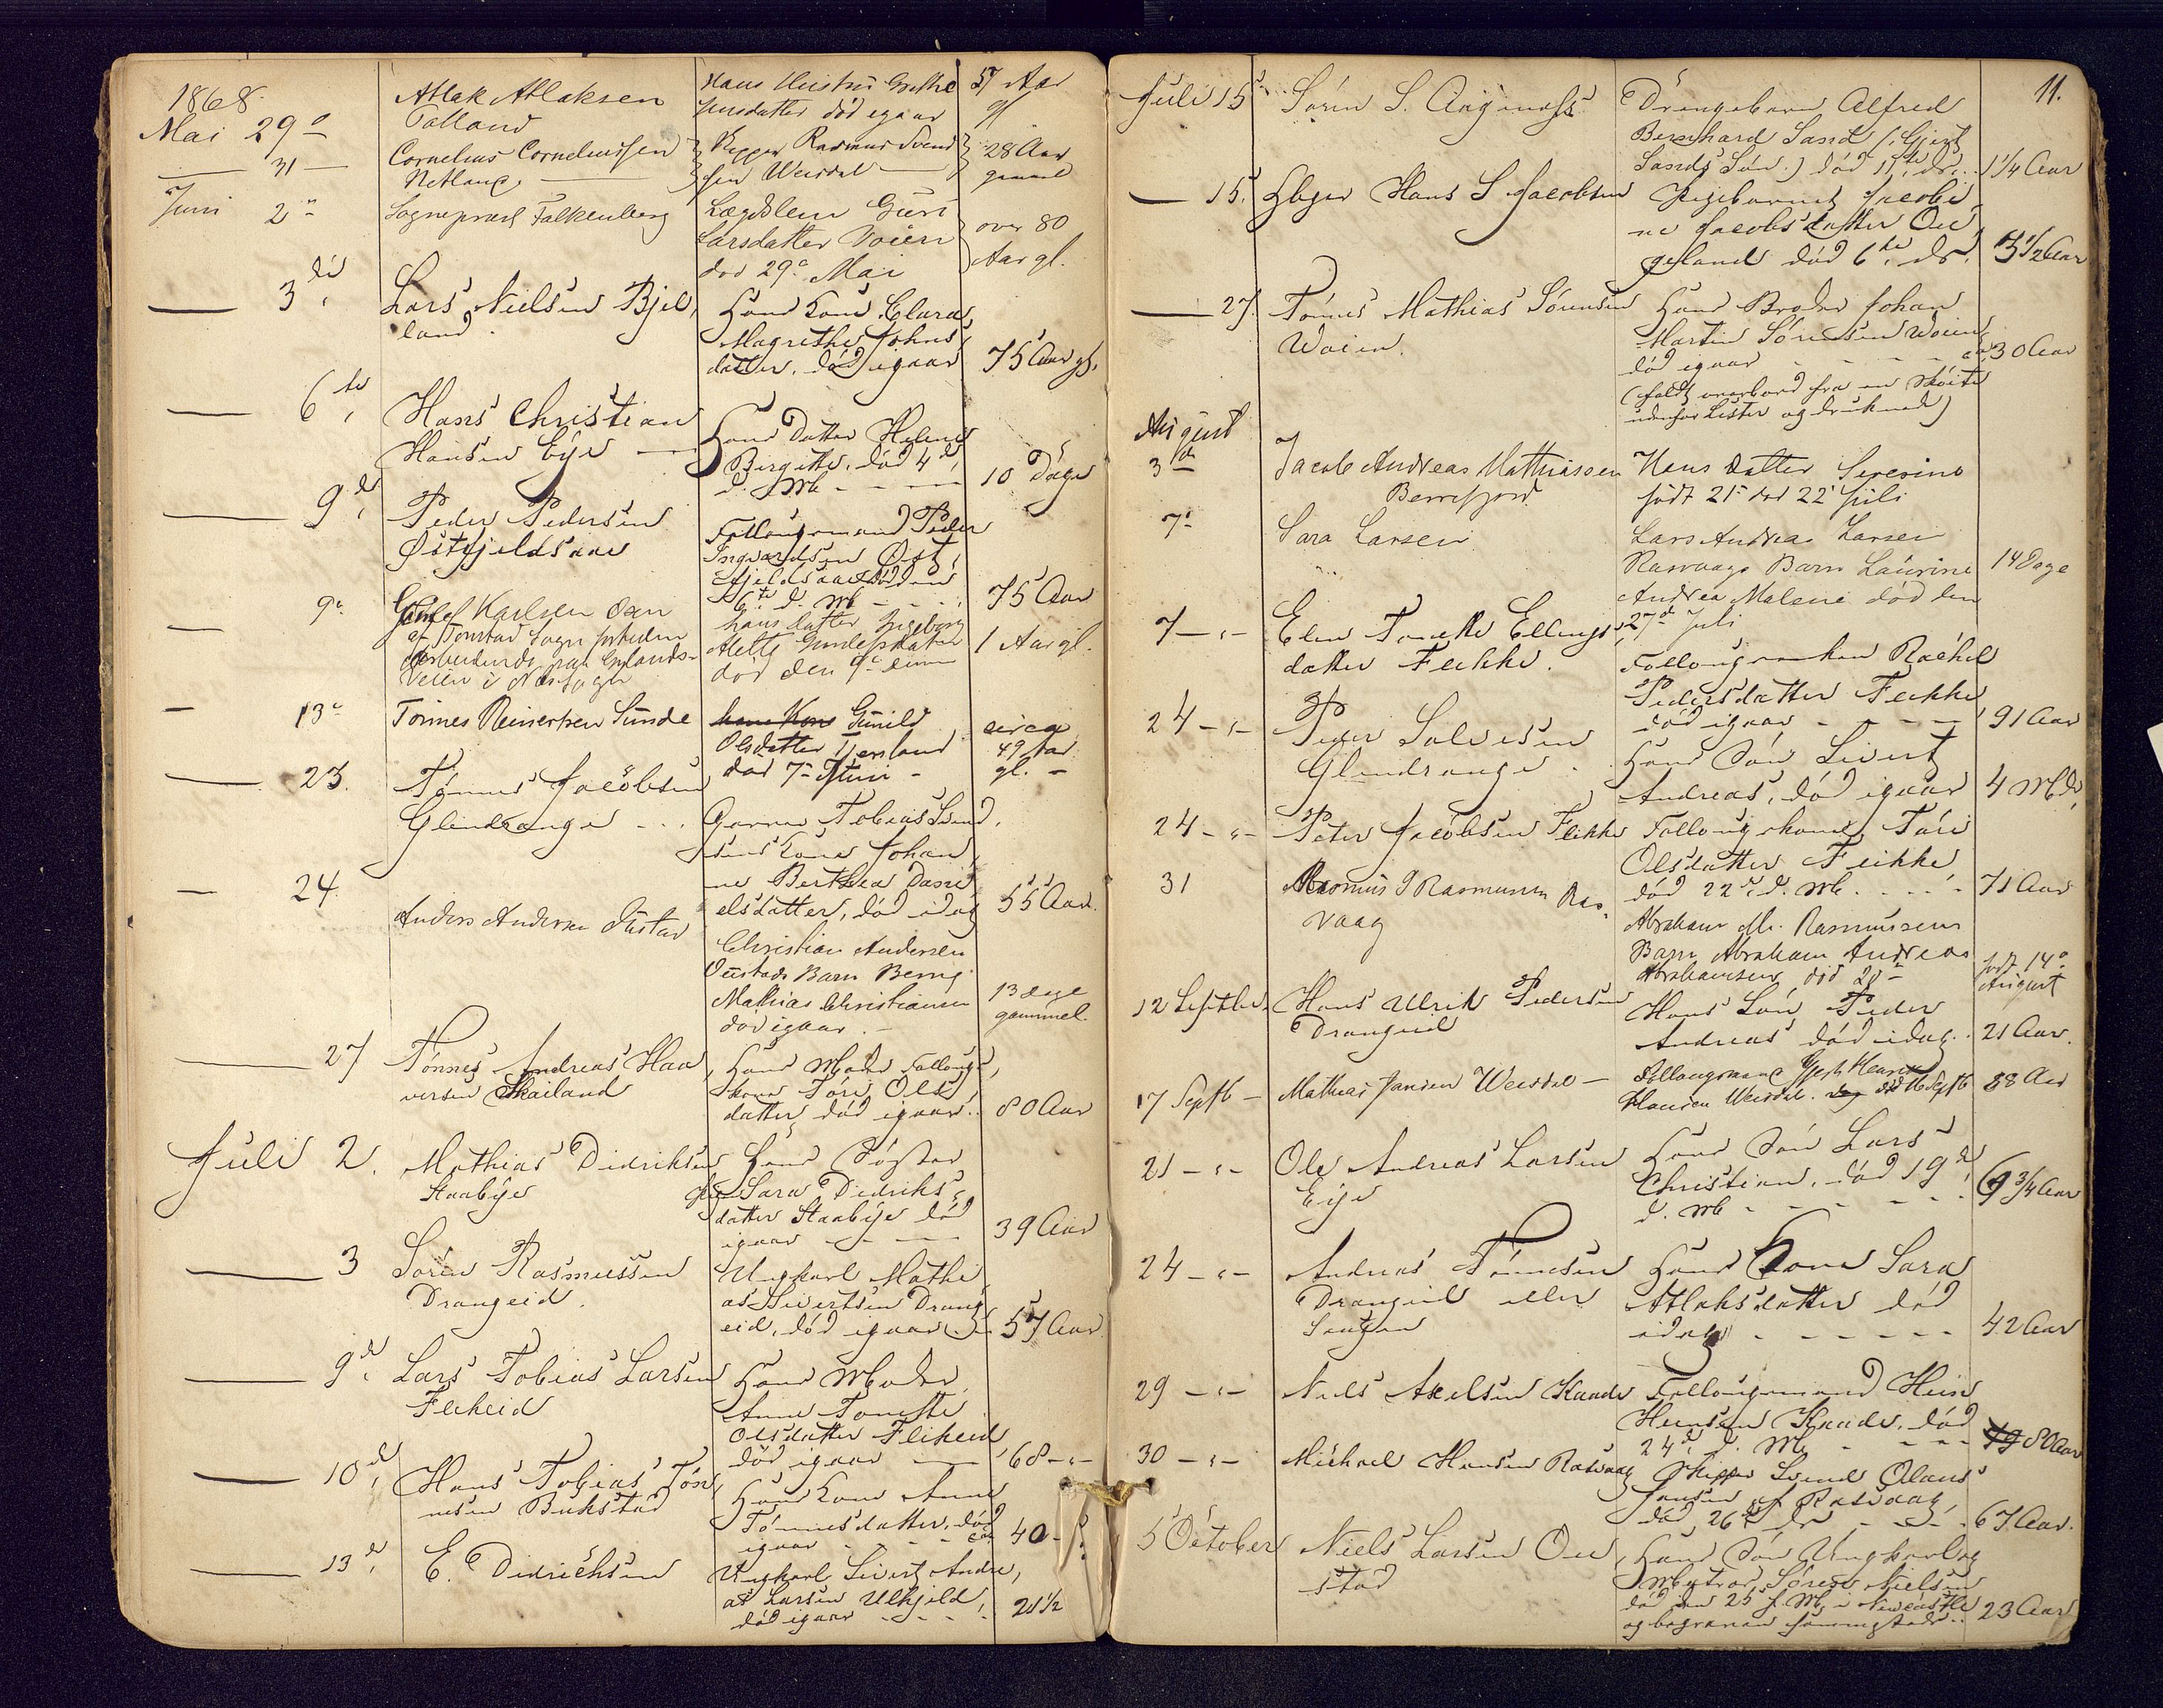 1868.
Mai 29de
Atlak Atlaksen
Tolland
Hans Hustru Grethe
Jensdatter død igaar
57 Aar
gl
31
Cornelius Corneliussen
Netland
Rasmus Svend
sen Weisdal
28 Aar
gammel
Juni 2de
Sogneprest Falkenberg
Lægdslem Guri
Larsdatter Voien
død 29de Mai
over 80
Aar gl.
3die
Lars Nielsen Bjel,
land.
Hans Kone Clara
Magrethe Johns,
datter, død igaar
75 Aar gl.
6te
Hans Christian
Hansen Eye
Hans Datter Helene
Birgitte, død 4de
d. Mb
10 Dage
9de
Peder Pedersen
Østfjeldsaae
Follougsmand Peder
Ingvardsen Øst,
fjeldsaae død den
6te d. Mb
75 Aar
9de
Karlsen
af Tonstad Sogn for tiden
arbeidende paa
Veien i
hans datter Ingeborg
Mette
død den 4de
1 Aar gl.
13de
Tønnes Reinertsen Sunde
hans Kone Gunild
Olsdatter
død 7de Juni
circa
49 Aar
gl.
23.
Tønnes Jacobsen
Glendrange
Tobias Svend,
sens Kone Johan,
ne Berthea Dani
elsdatter, død idag
55 Aar.
24.
Anders Andersen
Christian Andersen
Oustads Barn Bernt
Mathias Christiansen
død igaar.
13 dage
gammel.
27
Tønnes Andreas Haa,
versen Skailand
Hans Moder Follougs,
kone Tori Ols,
datter, død igaar.
80 Aar
Juli 2.
Mathias Didriksen
Staabye
Hans Søster
Sara Didriks,
datter Staabye død
igaar
39 Aar
3
Søren Rasmussen
Drangeid.
Ungkarl Mathi
as Sivertsen Drang
eid, død igaar
57 Aar
9de
Lars Tobias Larsen
Flikeid
Hans Moder
Anne Tonette
Olsdatter Flikeid,
død igaar
68
10de
Hans Tobias Tøn,
nesen Bukstad
Hans Kone Anne
Tønnesdatter, død
igaar
40
13de
E. Didrichsen
Ungkarl Sivert Andre,
as Larsen Ulkjeld
død igaar
21 1/2
11.
Juli 15
Søren S.
Drengebarn Alfred
Bernhard Sand (Gjert
Sands Søn.) død 11te ds.
1 1/4 Aar
15.
Hans S Jacobsen
Pigebarnet Jacobi
ne Jacobsdatter Oue,
gesland død 6te ds.
3 1/2 Aar
27.
Tønnes Mathias Sørensen
Woien.
Hans Broder Johan
Martin Sørensen Woien
død igaar
30 Aar
(faldt overbord fra en Skøite
udenfor Lister og druknede)
August
3de
Jacob Andreas Mathiassen
Berrefjord.
Hans datter Seresine
født 21de død 22de Juli
7de
Sara Larsen
Lars Andreas Larsen
Rasvaags Barn Laurine
Andrea Malene død den
27de Juli
14 Dage
7
Elen Tonette Ellings,
datter Fekke.
Follougsenken Rachel
Pedersdatter Fekke
død igaar
91 Aar
24
Peder Salvesen
Glendrange.
Hans Søn Sivert
Andreas, død igaar
4 Mdr.
24
Peter Jacobsen Flikke
Follougskone Tori
Olsdatter Flikke
død 22de d. Mb.
71 Aar
31
Rasmus J Rasmussen Ras,
vaag
Abraham M. Rasmussens
Barn Abraham Andreas
Abrahamsen, død 20de
født 14de
August
12 Septbr.
Hans Ulrik Pedersen
Drangeid
Hans Søn Peder
Andreas død idag.
21 Aar.
17 Septb
Mathias Jansen Weisdal
Follougsmand Gjert Henrik
Hansen Weisdal. død 16 Septb
88 Aar
21
Ole Andreas Larsen
Eye
Hans Søn Lars
Christian, død 19de
d. Mb
9 3/4 Aar
24
Andreas Tønnesen
Drangeid eller
Hans Kone Sara
Atlaksdatter død
idag
42 Aar
29
Niels Axelsen Kaade
Follougsmand Hein
Heinsen Kaade, død
24de d. M.
80 Aar
30
Michael Hansen Rasvaag
Skipper Svend Olaus
Jansen af Rasvaag,
død 26de ds
67 Aar.
5 October
Niels Larsen Ou,
stad
Hans Søn Ungkarl og
Matros Søren Nielsen
død den 25 f. Mb i Newcastle
og begraven sammesteds..
23 Aar